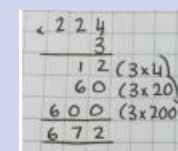 × 224
3
12 (3×4)
60 (3×20
600 (3×200
672